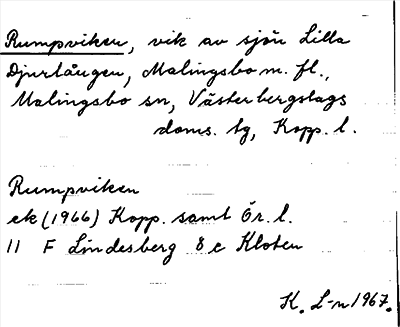 Rumpviken, vik av sjön Lilla
Djurlången, Malingsbo m. fl.,
Malingsbo sn, Västerbergslags
doms. tg, Kopp. l.
Rumpviken
ek (1966) Kopp. samt Ör. l.
11 F Lindesberg 8 c Kloten
K. L-n 1967.